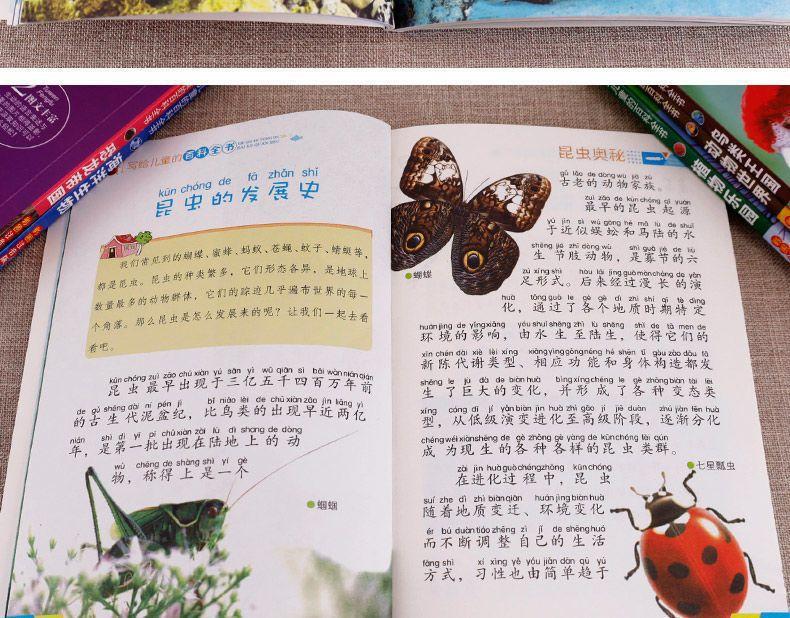 写给儿童的百科全书
kūn chóng de fā zhǎn shǐ
昆虫的发展史
我们常见到的蝴蝶、蜜蜂、蚂蚁、苍蝇、蚊子、蜻蜓等，
都是昆虫。昆虫的种类繁多，它们形态各异，是地球上
数量最多的动物群体，它们的踪迹几乎遍布世界的每一
个角落。那么昆虫是怎么发展来的呢？让我们一起去看
看吧。
kūn chóng zuì zǎo chū xiàn yú sān yì wǔ qiān sì bǎi wàn nián qián
昆虫最早出现于三亿五千四百万年前
de gǔ shēng dài ní pén jì bǐ niǎo lèi de chū xiàn zǎo jìn liǎng yì
的古生代泥盆纪，比鸟类的出现早近两亿
nián shì dì yī pī chū xiàn zài lù dì shang de dòng
年，是第一批出现在陆地上的动
wù chēng de shàng shì yí gè
物，称得上是一个
蝈蝈
昆虫奥秘
gǔ lǎo de dòng wù jiā zú
古老的动物家族。
zuì zǎo de kūn chóng qǐ yuán
最早的昆虫起源
yú jìn sì wú gōng hé mǎ lù de shuǐ
于近似蜈蚣和马陆的水
shēng jié zhī dòng wù shì guǎ jié de liù
生节肢动物，是寡节的六
zú xíng shì hòu lái jīng guò màn cháng de yǎn
足形式。后来经过漫长的演
huà tōng guò le gè gè dì zhì shí qī tè dìng
化，通过了各个地质时期特定
huán jìng de yǐng xiǎng yóu shuǐ shēng zhì lù shēng shǐ de tā men de
环境的影响，由水生至陆生，使得它们的
xīn chén dài xiè lèi xíng xiāng yìng gōng néng hé shēn tǐ gòu zào dōu fā
新陈代谢类型、相应功能和身体构造都发
shēng le jù dà de biàn huà bìng xíng chéng le gè zhǒng biàn tài lèi
生了巨大的变化，并形成了各种变态类
xíng cóng dī jí yǎn biàn jìn huà zhì gāo jí jiē duàn zhú jiàn fēn huà
型，从低级演变进化至高级阶段，逐渐分化
chéng wéi xiàn shēng de gè zhǒng gè yàng de kūn chóng lèi qún
成为现生的各种各样的昆虫类群。
zài jìn huà guò chéng zhōng kūn chóng
在进化过程中，昆虫
suí zhe dì zhì biàn qiān huán jìng biàn huà
随着地质变迁、环境变化
ér bú duàn tiáo zhěng zì jǐ de shēng huó
而不断调整自己的生活
fāng shì xí xìng yě yóu jiǎn dān qū yú
方式，习性也由简单趋于
蝴蝶
七星瓢虫
植物乐园
动物世界
鸟类王国